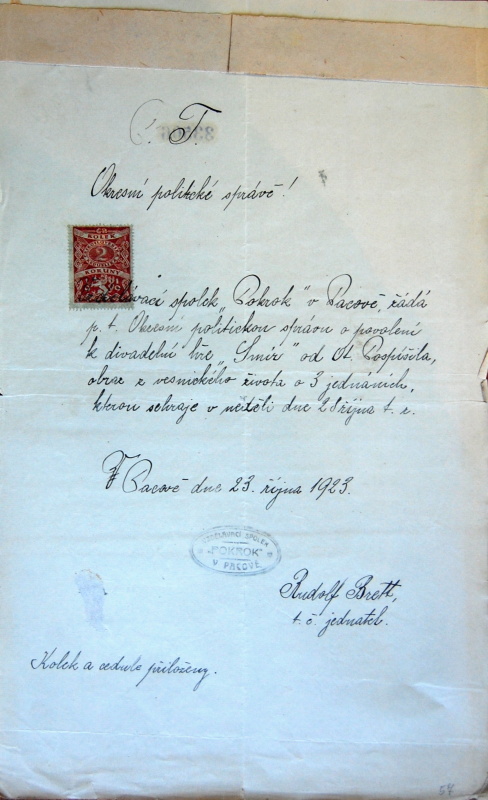 C. T.
Okresní politické správě!
KOLEK
2
KORUNY
spolek „Pokrok" v Pacově, žádá
p. t. Okresní politickou správu o povolení
k divadelní hře „Smír" od Ot. Pospíšila,
obraz z vesnického života o 3 jednáních,
kterou sehraje v neděli dne 28 října t. r.
V Pacově dne 23. října 1923.
VZDĚLÁVACÍ SPOLEK
"POKROK"
V PACOVĚ
Rudolf Brett,
t. č. jednatel.
Kolek a cedule přiloženy.
57